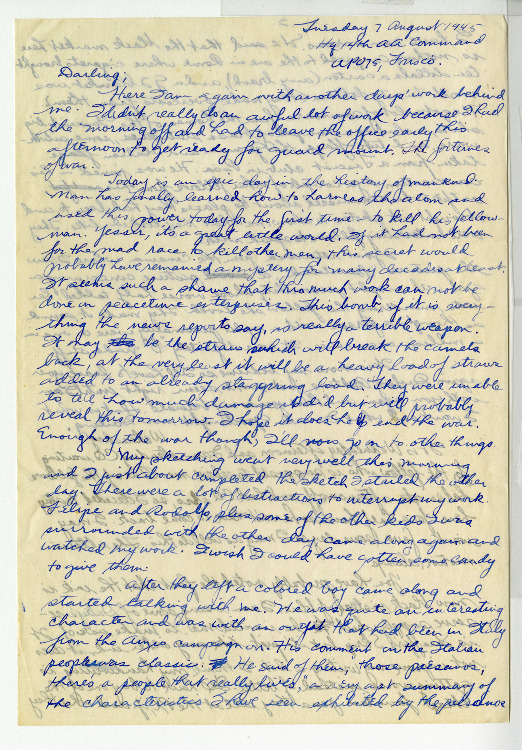 Tuesday 7 August 1945
Hq 14th AA Command
APO 75, Frisco.
Darling;
Here I am again with another days' work behind
me. I didn't really do an awful lot of work because I had
the morning off and had to leave the office early this
afternoon to get ready for guard mount. The fortunes
of war.
Today is an epic day in the history of mankind.
Man has finally learned how to harness the atom and
used this power today for the first time - to kill his fellow
man. Yessir, it's a great little world. If it had not been
for the mad race to kill other men, this secret would
probably have remained a mystery for many decades at least.
It seems such a shame that this much work can not be
done in peacetime enterprises. This bomb, if it is every-
thing the news reports say, is really a terrible weapon.
It may be the straw which will break the camels
back, at the very least it will be a heavy load of straws
added to an already staggering load. They were unable
to tell how much damage it did but will probably
reveal this tomorrow. I hope it does help end the war.
Enough of the war though, I'll now go on to other things.
My sketching went very well this morning
and I just about completed the sketch I started the other
day. There were a lot of distractions to interrupt my work.
Felipe and Rodolfo, plus some of the other kids I was
surrounded with the other day, came along again and
watched my work. I wish I could have gotten some candy
to give them.
After they left a colored boy came along and
started talking with me. He was quite an interesting
character and was with an outfit that had been in Italy
from the Anzio campaign on. His comment on the Italian
people was classic. He said of them, "those
there's a people that really lives," a very apt summary of
the characteristics I have seen exhibited by the